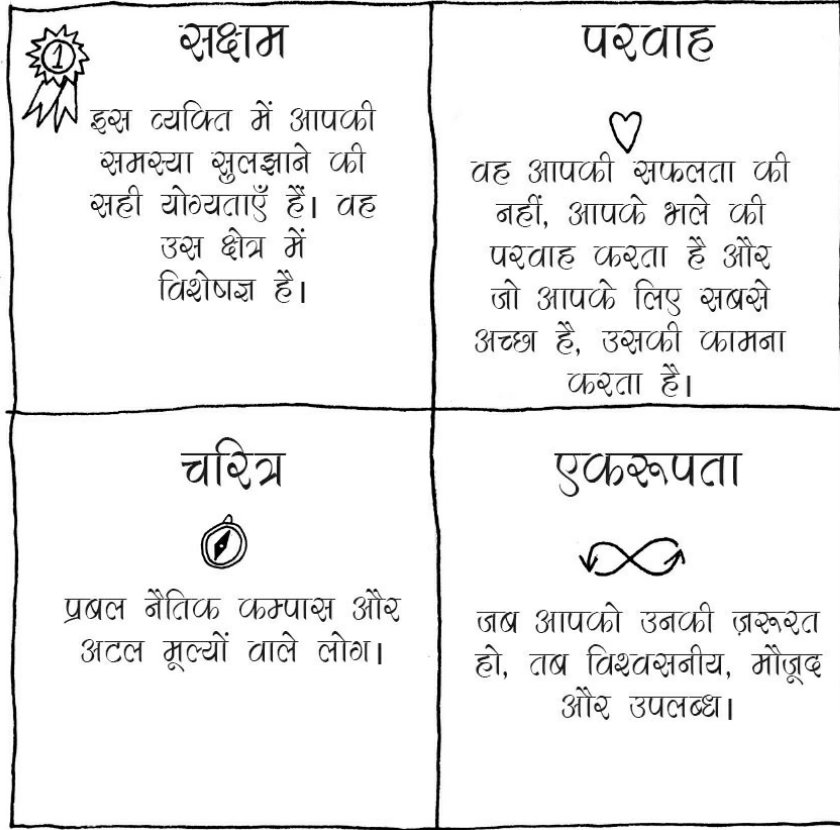 सक्षम
1
इस व्यक्ति में आपकी
समस्या सुलझाने की
सही योग्यताएँ हैं। वह
उस क्षेत्र में
विशेषज्ञ है।
परवाह
वह आपकी सफलता की
नहीं, आपके भले की
परवाह करता है और
जो आपके लिए सबसे
अच्छा है, उसकी कामना
करता है।
चरित्र
प्रबल नैतिक कम्पास और
अटल मूल्यों वाले लोग।
एकरूपता
जब आपको उनकी ज़रूरत
हो, तब विश्वसनीय, मौजूद
और उपलब्ध।